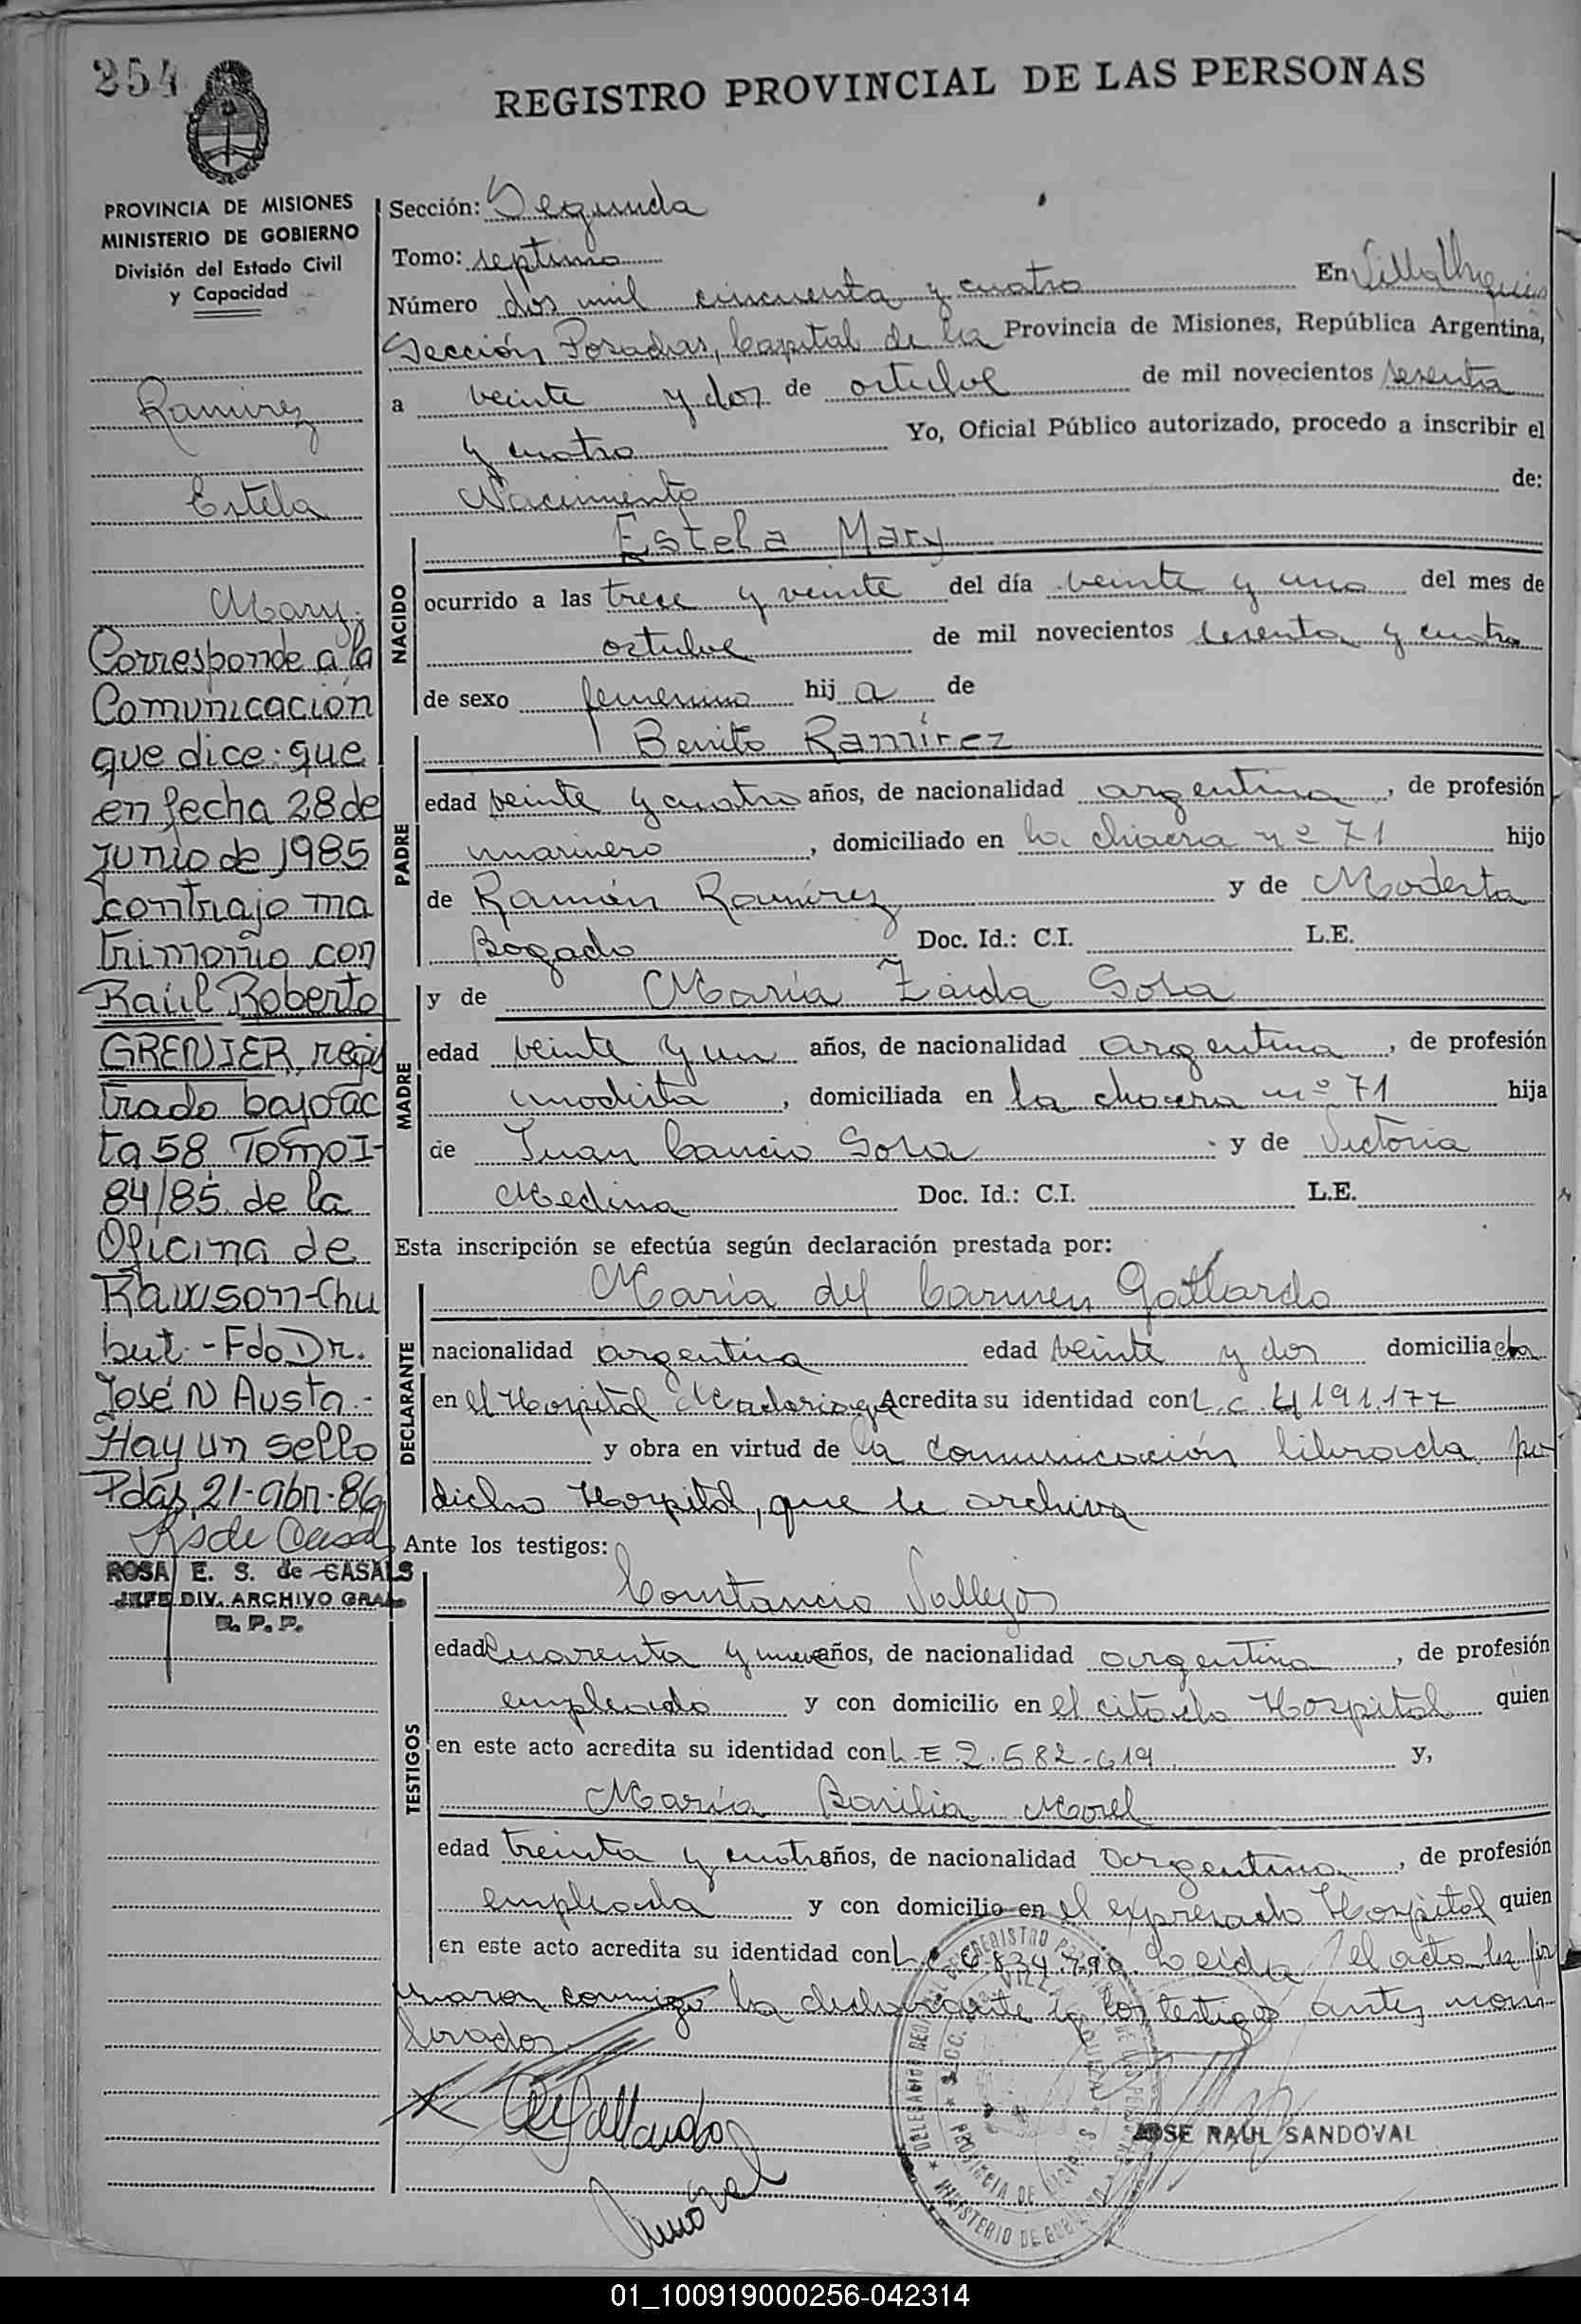 254
REGISTRO PROVINCIAL DE LAS PERSONAS
PROVINCIA DE MISIONES
MINISTERIO DE GOBIERNO
División del Estado Civil
y Capacidad
Ramirez
Estela
Mary.
Corresponde a la
Comunicación
que dice: que
en fecha 28 de
junio de 1985
contrajo ma
trimonio con
Raúl Roberto
GRENIER, regis
trado bajo ac
ta 58 Tomo I-
84/85 de la
Oficina de
Rawson-Chu
but.-Fdo Dr.
José N Austa.-
Hay un sello
Pdas, 21-abr.-86
ROSA E. S. de CASALS
JEFE DIV. ARCHIVO GRAL
R. P. P.
Sección: Segunda
Tomo: septimo
Número dos mil cincuenta y cuatro En Villa Urquiza
Sección Posadas, Capital de la Provincia de Misiones, República Argentina,
a veinte y dos de octubre de mil novecientos sesenta
y cuatro Yo, Oficial Público autorizado, procedo a inscribir el
Nacimiento de:
NACIDO
Estela Mary
ocurrido a las trece y veinte del día veinte y uno del mes de
octubre de mil novecientos sesenta y cuatro
de sexo femenino hij a de
PADRE
Benito Ramírez
edad veinte y cuatro años, de nacionalidad argentina, de profesión
marinero, domiciliado en la chacra nº 71 hijo
de Ramón Ramírez y de Modesta
Bogado Doc. Id.: C.I. L.E.
MADRE
y de María Zaida Sosa
edad veinte y un años, de nacionalidad argentina, de profesión
modista, domiciliada en la chacra nº 71 hija
de Juan Cancio Sosa y de Victoria
Medina Doc. Id.: C.I. L.E.
Esta inscripción se efectúa según declaración prestada por:
DECLARANTE
María del Carmen Gallardo
nacionalidad argentina edad veinte y dos domiciliada
en el Hospital Madariaga Acredita su identidad con L.C. 4.191.177
y obra en virtud de la comunicación librada por
dicho Hospital, que se archiva
Ante los testigos:
TESTIGOS
Constancio Vallejos
edad Cuarenta y nueve años, de nacionalidad argentina, de profesión
empleado y con domicilio en el citado Hospital quien
en este acto acredita su identidad con L.E 2.582.619 y,
María Basilia Morel
edad treinta y cuatro años, de nacionalidad argentina, de profesión
empleada y con domicilio en el expresado Hospital quien
en este acto acredita su identidad con L.C 6.834.790 Leida el acta la fir
maron conmigo la declarante y los testigos antes nom
brados
Gallardo
JOSE RAUL SANDOVAL
PROVINCIA DE MISIONES
MINISTERIO DE GOBIERNO
01_100919000256-042314